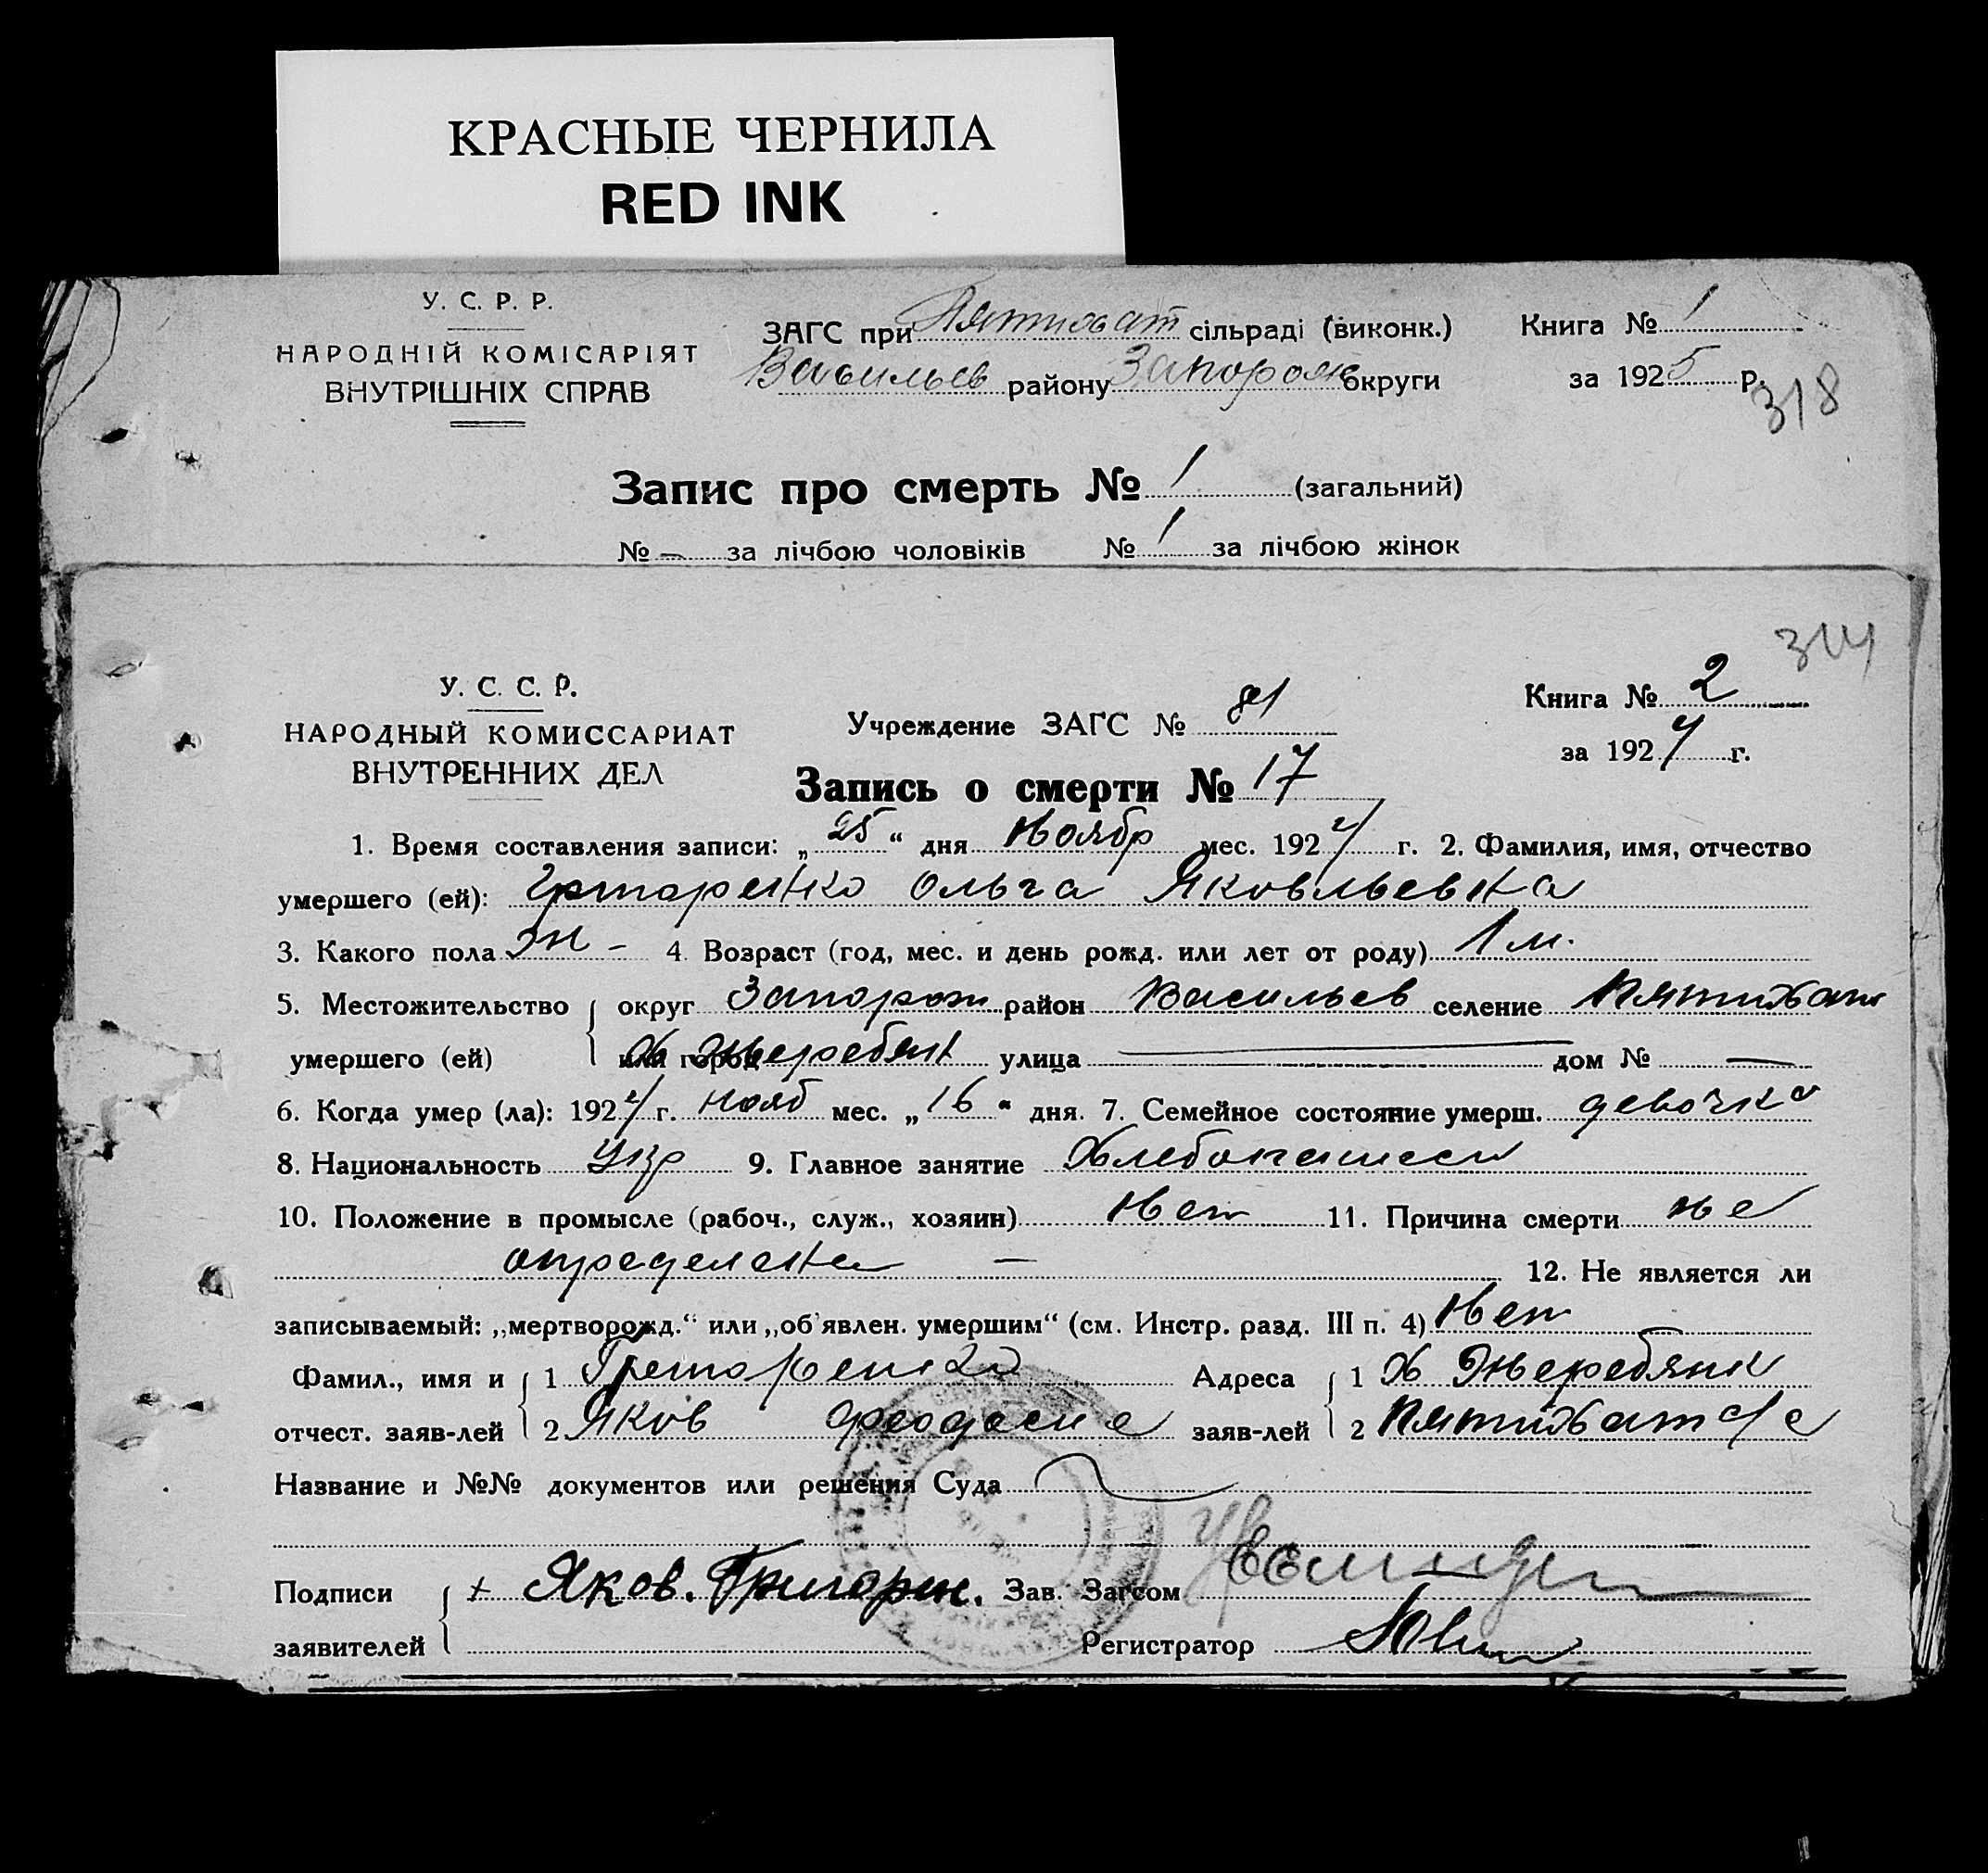 КРАСНЫЕ ЧЕРНИЛА
RED INK
У. С. Р. Р.
НАРОДНІЙ КОМІСАРІЯТ
ВНУТРІШНІХ СПРАВ
ЗАГС при Пятихат сільраді (виконк.)
Васильев району Запорож округи
Книга № 1
за 1925 р.
318
Запис про смерть № 1 (загальний)
№ — за лічбою чоловіків № 1 за лічбою жінок
314
У. С. С. Р.
НАРОДНЫЙ КОМИССАРИАТ
ВНУТРЕННИХ ДЕЛ
Учреждение ЗАГС № 81
Книга № 2
за 1924 г.
Запись о смерти № 17
1. Время составления записи: „25“ дня Ноябр мес. 1924 г. 2. Фамилия, имя, отчество
умершего (ей): Ольга Яковльевна
3. Какого пола ж – 4. Возраст (год, мес. и день рожд. или лет от роду) 1 м.
5. Местожительство округ Запорож район Васильев селение Пятихат
умершего (ей) или город Х Жеребянк улица — дом № —
6. Когда умер (ла): 1924 г. нояб мес. „16“ дня. 7. Семейное состояние умерш. девочка
8. Национальность Укр 9. Главное занятие
10. Положение в промысле (рабоч., служ., хозяин) Нет 11. Причина смерти не
определена —
12. Не является ли
записываемый: „мертворожд.“ или „об'явлен. умершим“ (см. Инстр. разд. III п. 4) Нет
Фамил., имя и 1 Адреса 1 Х Жеребянк
отчест. заяв-лей 2 Яков заяв-лей 2 Пятихат с/с
Название и №№ документов или решения Суда
Подписи + Яков. Григорен. Зав. Загсом
заявителей Регистратор